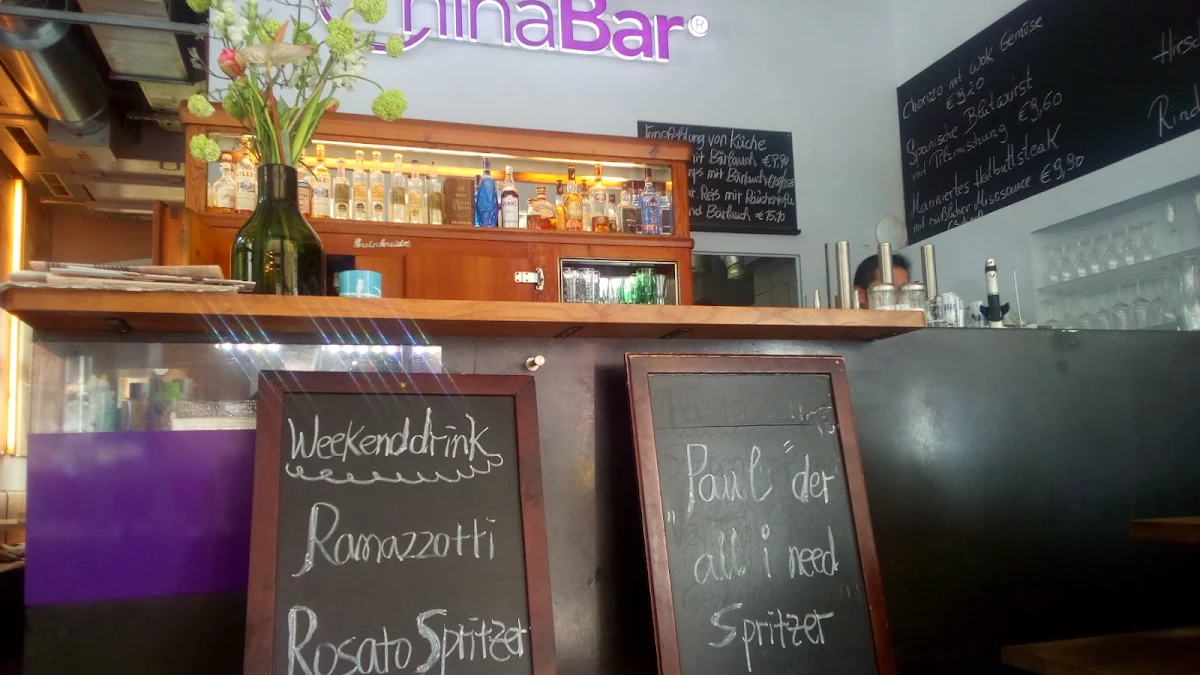 ChinaBar®
Empfehlung von Küche
mit Bärlauch €7,90
mit Bärlauch
Reis mit
und Bärlauch € 15,10
Chorizo mit Wok Gemüse
€9,20
Spanische Blutwurst
mit Pilzmischung €9,60
Mariniertes Heilbuttsteak
mit süßlicher Misosauce €9,90
Hirsc
Rind
Weekenddrink
Ramazzotti
Rosato Spritzer
"Paul" der
all i need
Spritzer